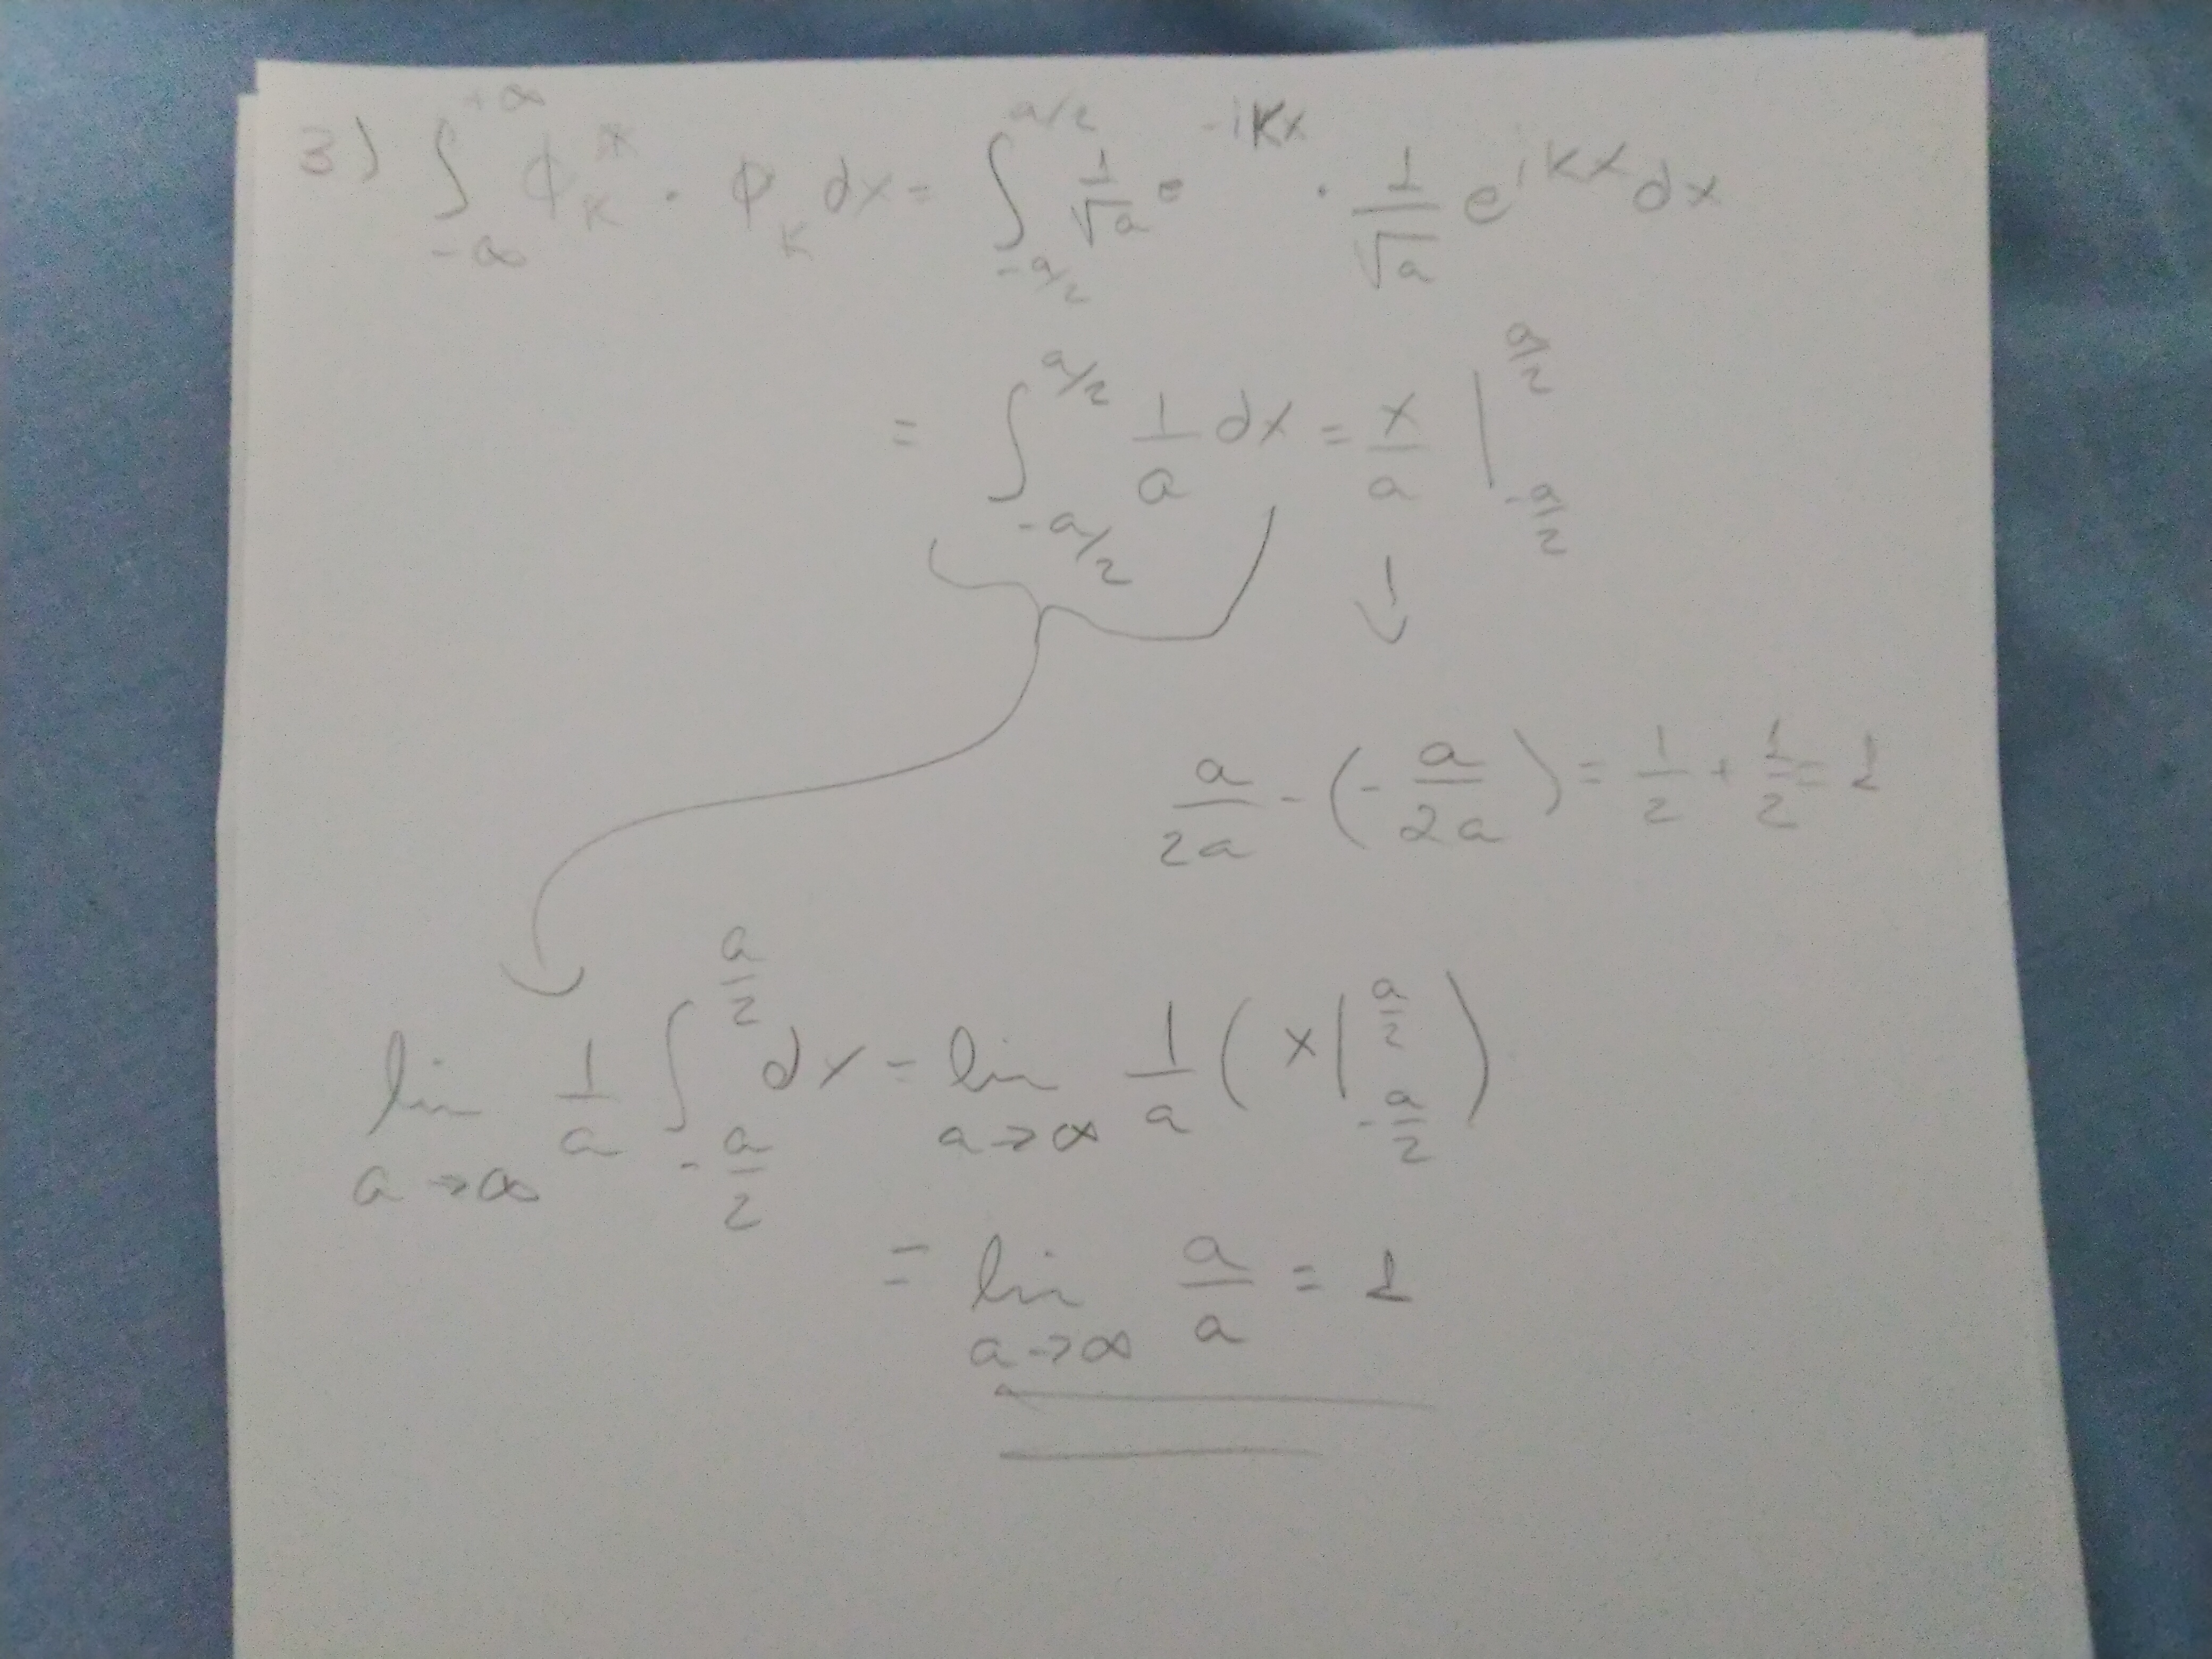 3) ∫_{-∞}^{+∞} ϕ_K^* · ϕ_K dx = ∫_{-a/2}^{a/2} 1/√a e^{-iKx} · 1/√a e^{iKx} dx
= ∫_{-a/2}^{a/2} 1/a dx = x/a |_{-a/2}^{a/2}
a/2a - (- a/2a) = 1/2 + 1/2 = 1
lim_{a→∞} 1/a ∫_{-a/2}^{a/2} dx = lim_{a→∞} 1/a ( x |_{-a/2}^{a/2} )
= lim_{a→∞} a/a = 1